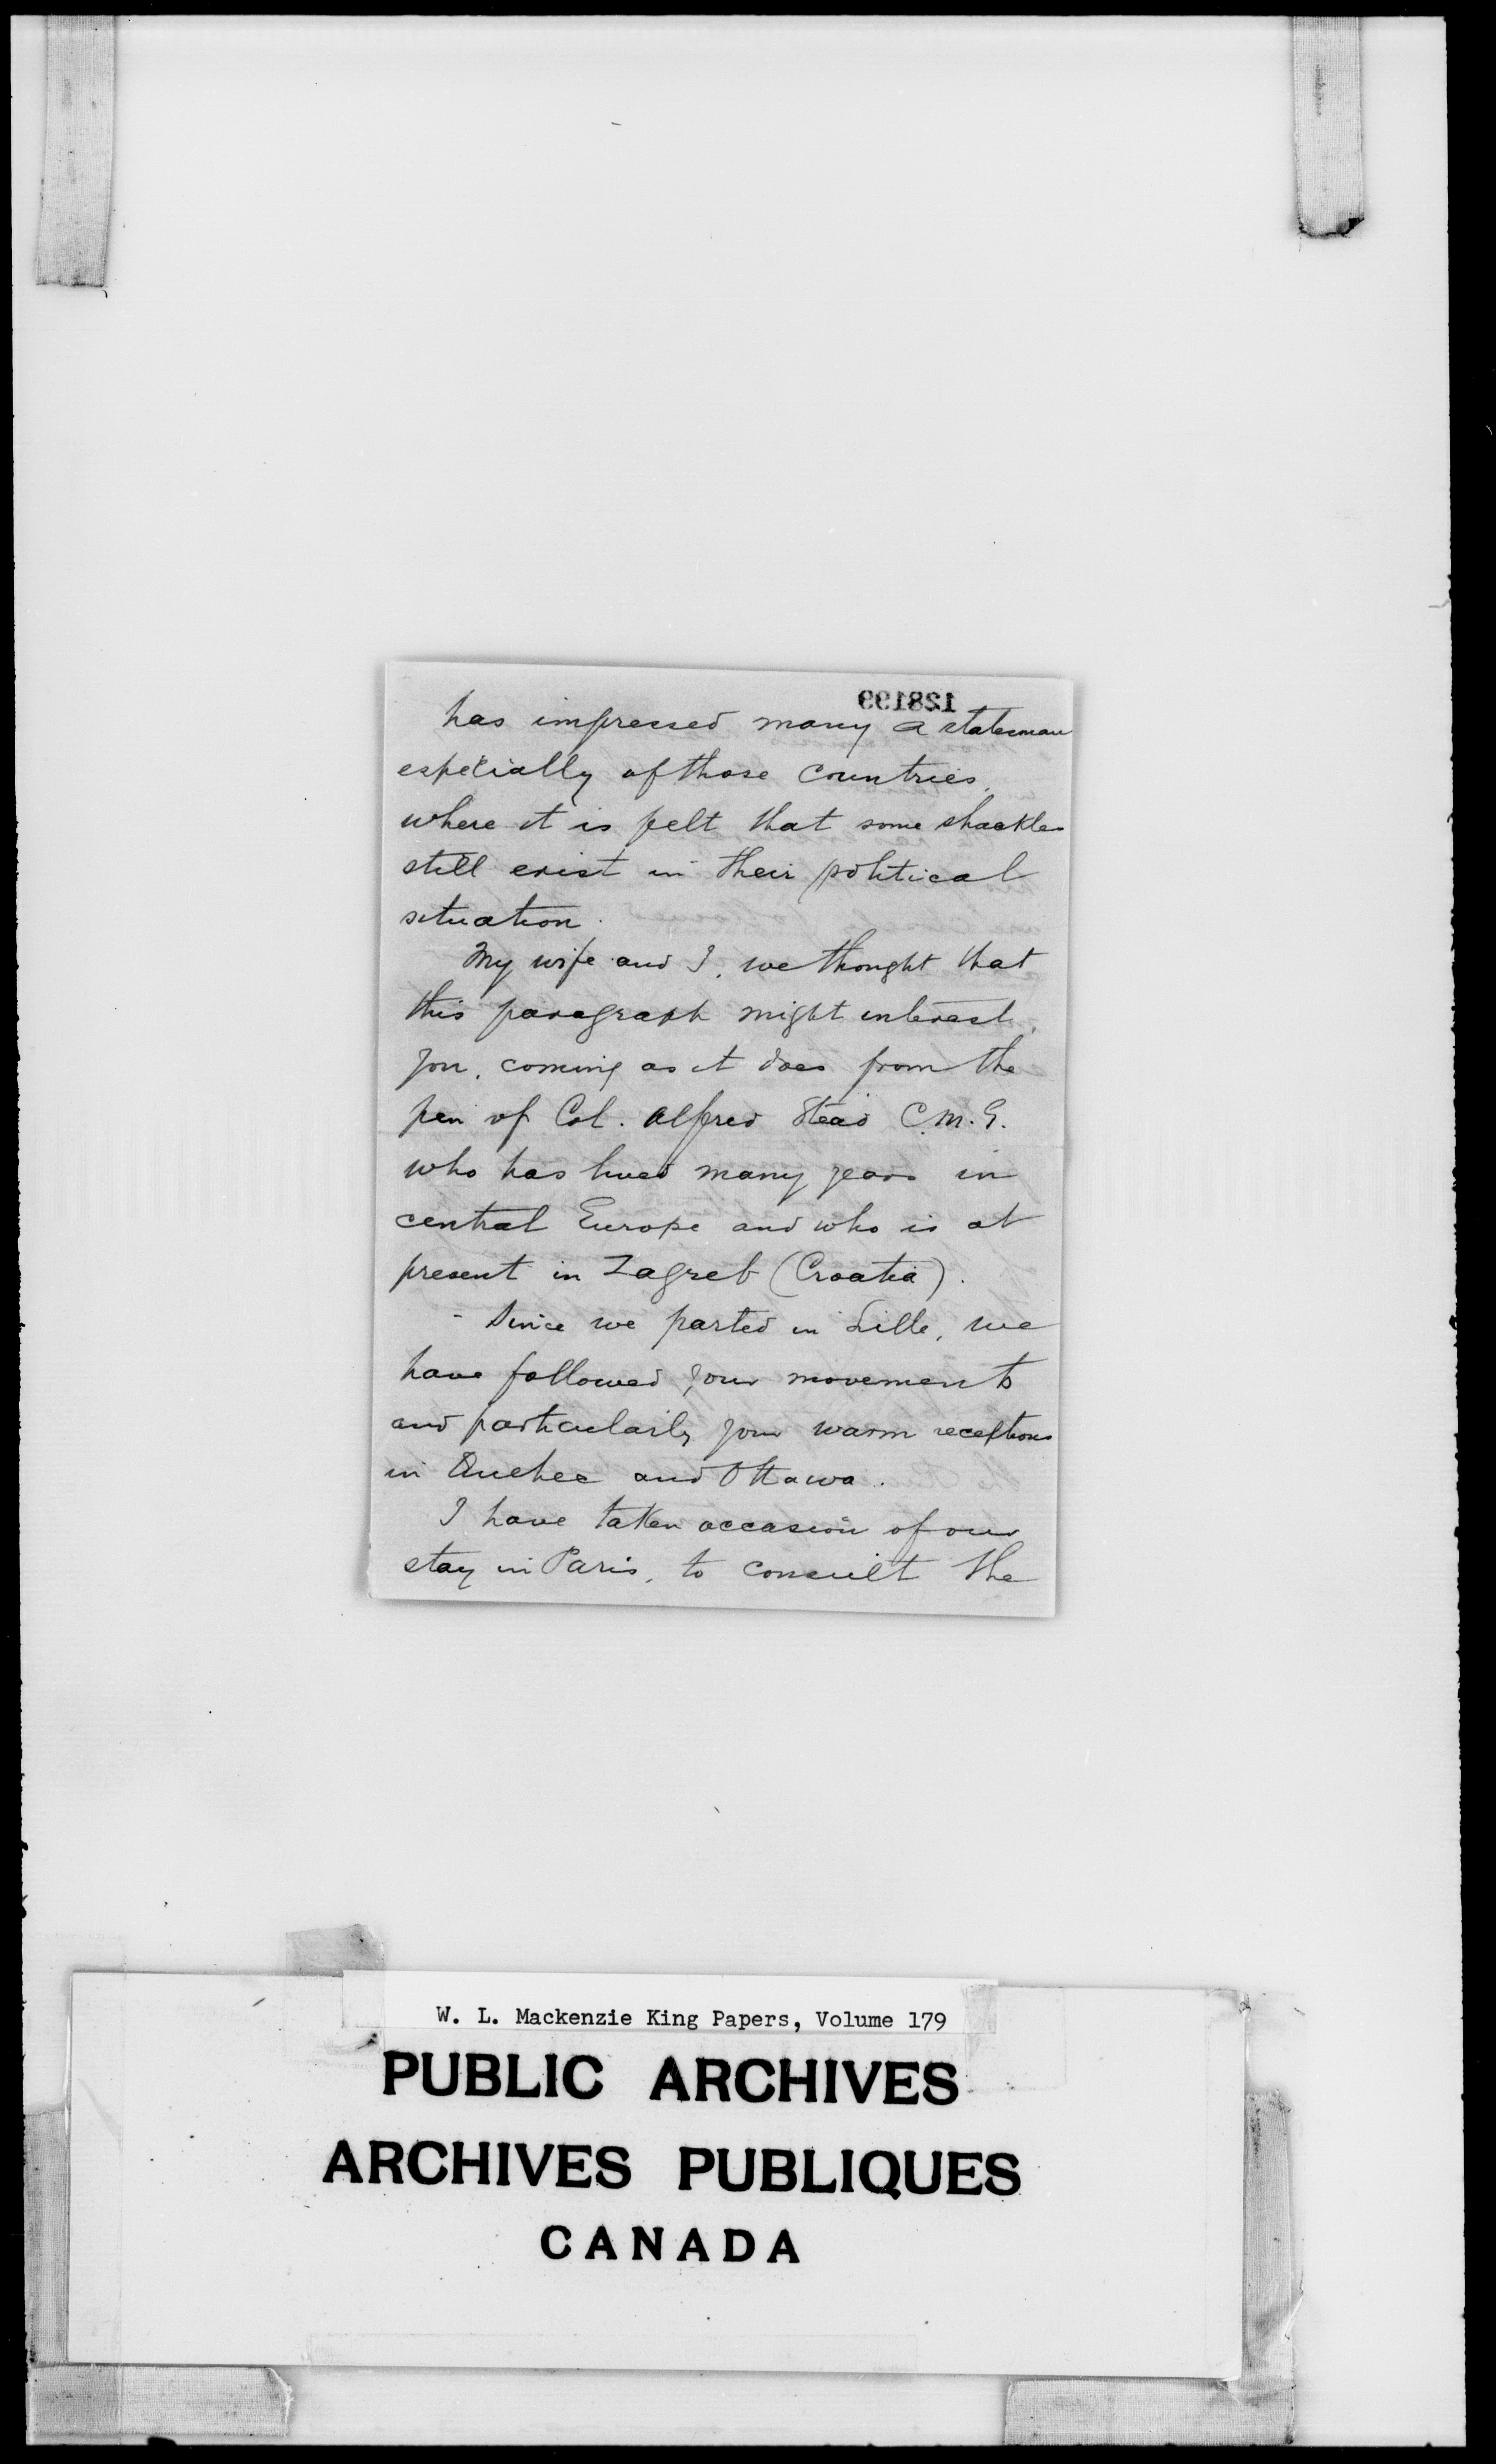 128199
has impressed many a statesman
especially of those countries,
where it is felt that some shackles
still exist in their political
situation.
My wife and I, we thought that
this paragraph might interest
you, coming as it does from the
pen of Col. Alfred Stead C.M.G.
who has lived many years in
central Europe and who is at
present in Zagreb (Croatia).
- Since we parted in Lille, we
have followed your movements
and particularly your warm receptions
in Quebec and Ottawa.
I have taken occasion of our
stay in Paris, to consult the
W. L. Mackenzie King Papers, Volume 179
PUBLIC ARCHIVES
ARCHIVES PUBLIQUES
CANADA